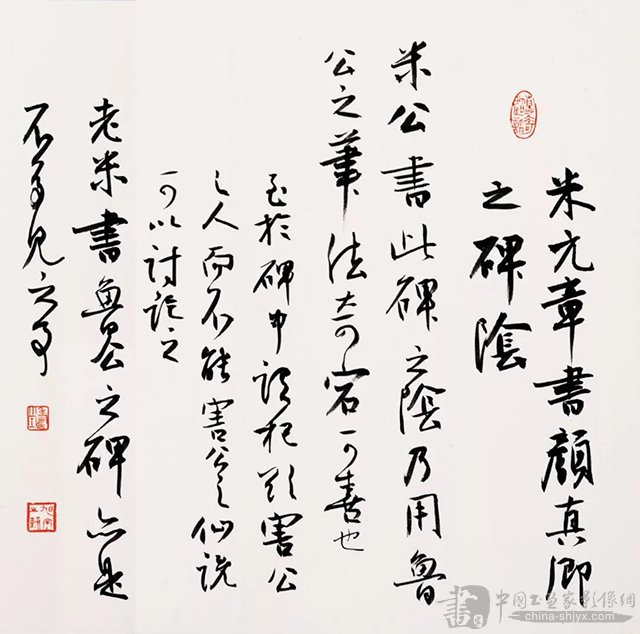 米元章書顏真卿
之碑陰
米公書此碑之陰乃用魯
公之筆法奇宕可喜也
至於碑中謂杞欲害公
之人而不能害公之仙說
可以討論之
老米書魯公之碑亦是
不多見之事
中國书画家影像網
china-shjyx.com